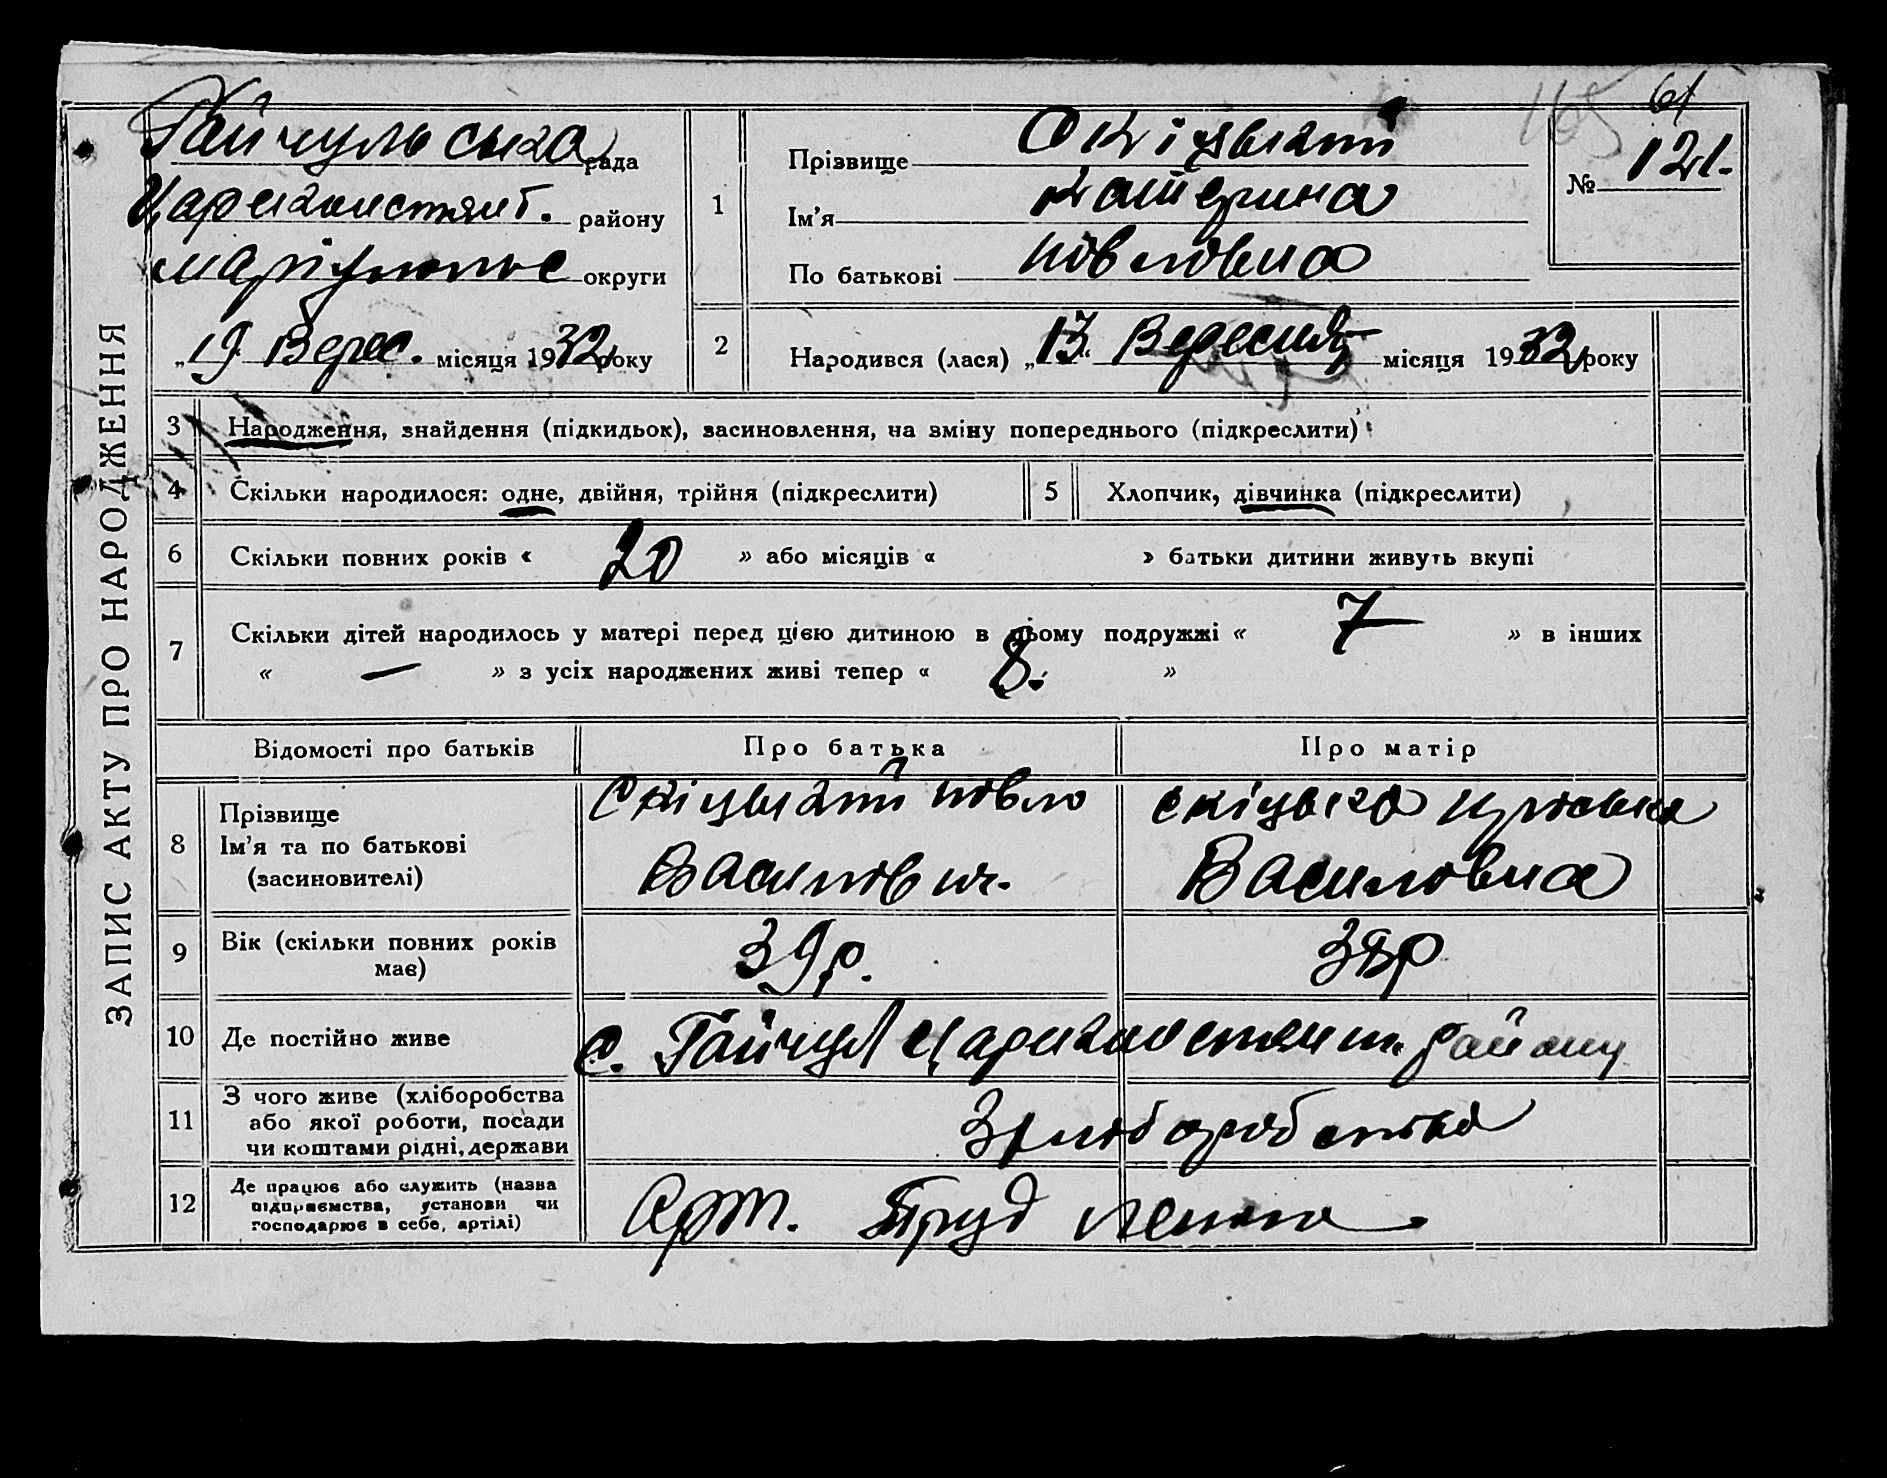 165 61
Гайчульська рада
Царекостянт. району
маріупольс округи
„19 Верес. місяця 1932 року
1
Прізвище Скіцький
Ім'я Катерина
По батькові Повловна
№ 121.
2
Народився (лася) „13“ Вересня місяця 1932 року
ЗАПИС АКТУ ПРО НАРОДЖЕННЯ
3 Народження, знайдення (підкидьок), засиновлення, на зміну попереднього (підкреслити)
4 Скільки народилося: одне, двійня, трійня (підкреслити) 5 Хлопчик, дівчинка (підкреслити)
6 Скільки повних років « 20 » або місяців « » батьки дитини живуть вкупі
7 Скільки дітей народилось у матері перед цією дитиною в цьому подружжі « 7 » в інших
« — » з усіх народжених живі тепер « 8. »
Відомості про батьків Про батька Про матір
8 Прізвище
Ім'я та по батькові
(засиновителі)
Скіцький Повло
Васильович.
Скіцька
Василовна
9 Вік (скільки повних років
має)
39 р. 38 р
10 Де постійно живе с. Гайчул Царекостянт. району
11 З чого живе (хліборобства
або якої роботи, посади
чи коштами рідні, держави
З хліборобства
12 Де працює або служить (назва
підприємства, установи чи
господарює в себе, артілі)
Арт. Труд Леніна